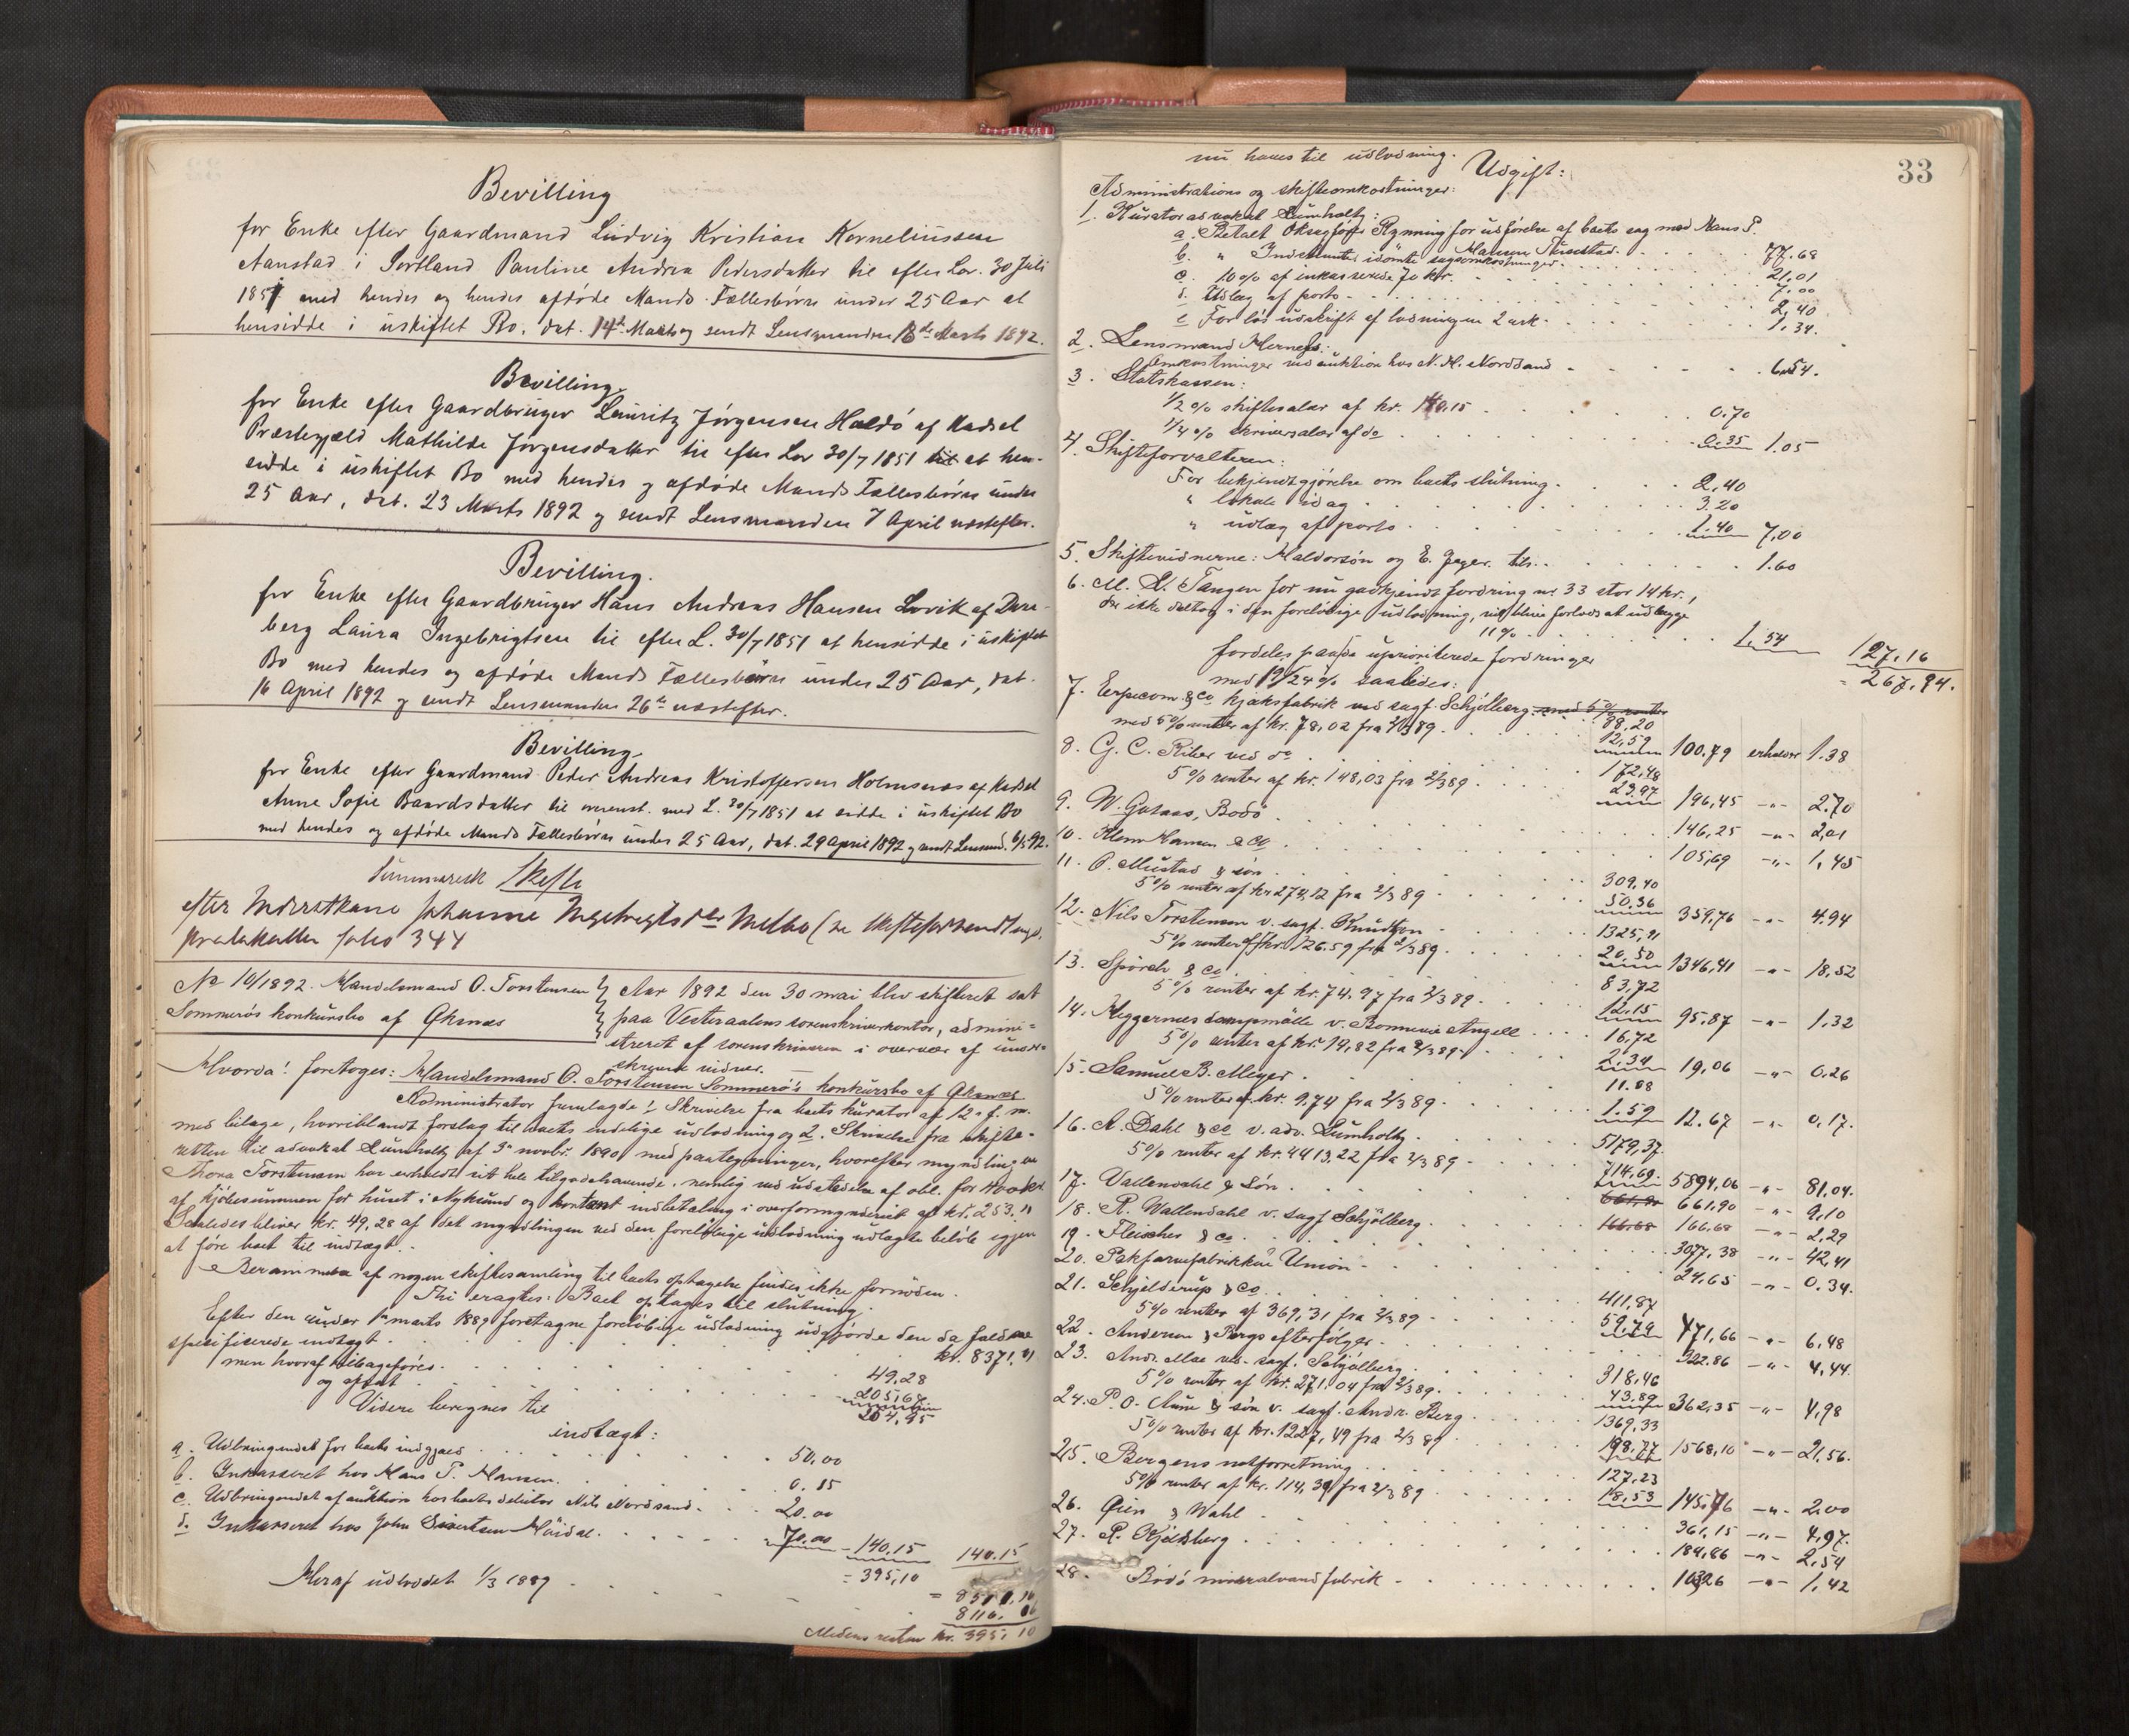 Bevilling
for Enke efter Gaardmand Ludvig Kristian Korneliussen
Aanstad i Sortland Pauline Andrea Pedersdatter til efter Lov. 30 Juli
1851 med hendes og hendes afdøde Mands Fællesbørn under 25 Aar at
hensidde i uskiftet Bo, dat. 14de Marts og sendt Lensmanden 18de Marts 1892.
Bevilling
for Enke efter Gaardbruger Lauritz Jørgensen Haldø af Hadsel
Præstegjæld Mathilde Jørgensdatter til efter Lov 30/7 1851 at hen-
sidde i uskiftet Bo med hendes og afdøde Mands Fællesbørn under
25 Aar, dat. 23 Marts 1892 og sendt Lensmanden 7 April næstefter.
Bevilling.
for Enke efter Gaardbruger Hans Andreas Hansen Lovik af Dver-
berg Laura Ingebrigtsen til efter L. 30/7 1851 at hensidde i uskiftet
Bo med hendes og afdøde Mands Fællesbørn under 25 Aar, dat.
16 April 1892 og sendt Lensmanden 26de næstefter.
Bevilling.
for Enke efter Gaardmand Peder Andreas Kristoffersen Holmsnes af Hadsel
Anne Sofie Baardsdatter til overenst. med L. 30/7 1851 at sidde i uskiftet Bo
med hendes og afdøde Mands Fællesbørn under 25 Aar, dat. 29 April 1892 og sendt Lensmd. 6/5 92.
Summarisk Skifte
efter Inderstkone Johanne Ingebrigtsdtr Melbo (se Skifteforhandlings
protokollen folio 344
No 10/1892. Handelsmand O. Torstensen
Sommerøs konkursbo af Øksnes
Aar 1892 den 30 mai blev skifteret sat
paa Vesteraalens sorenskriverkontor, admini=
streret af sorenskriveren i overvær af under-
skrevne vidner.
Hvorda! foretoges: Handelsmand O. Torstensen Sommerø's konkursbo af Øksnes
Administrator fremlagde 1. Skrivelse fra boets kurator af 12. f. m.
med bilage, hvoriblandt forslag til boets endelige udlodning og 2. Skrivelse fra skifte-
retten til advokat Lumholtz af 3 novbr. 1890 med paategninger, hvorefter myndlingen
Thora Torstensen har erholdt sit hele tilgodehavende, nemlig ved udstedelse af obl. for 400 kr.
af kjøbesummen for huset i Nyksund og kontant indbetaling i overformynderiet af kr. 253.11
Saaledes bliver kr. 49,28 af det myndlingen ved den foreløbige udlodning udlagte beløb igjen
at føre boet til indtægt.
Berammelse af nogen skiftesamling til boets optagelse findes ikke fornøden.
Thi eragtes: Boet optages til slutning.
Efter den under 1 marts 1889 foretagne foreløbige udlodning udgjorde den da faldne
specificerede indtægt . . . kr. 8371,
men hvoraf tilbageføres . . . 49,28
og afsat . . . 205,67
254,95
Videre beregnes til
indtægt:
a. Udbringendet for boets indgjæld . . . 50,00
b. Inkasseret hos Hans P. Hansen . . . 0.15
c. Udbringendet af auktion hos boets debitor Nils Nordsand . . . 20.00
d. Inkasseret hos John Sivertsen Høidal . . . 70.00 - 140,15 140.15
= 395,10
= 8511,
Heraf udloddet 1/3 1889 . . . 8116.
Medens rester kr. 395,10
33
nu haves til udlodning.
Udgift:
Administrations og skifteomkostninger:
1. Kurator advokat Lumholtz:
a. Betalt Oksagfører Rynning for udførelse af boets sag mod Hans P.
Hansen . . . 77.68
b. " Indstevnte idømte sagsomkostninger . . . 21,01
c. 10% af inkasserede 70 kr. . . . 7.00
d. Udlæg af porto . . . 2,40
e For løs udskrift af lodningen 2 ark . . . 1,34.
2. Lensmand Hernes:
Omkostninger ved auktion hos N. H. Nordsand . . . 6.54.
3. Statskassen:
1/2% skiftesalær af kr. 140,15 . . . 0.70
1/4% skriversalær af do . . . 0.35 1.05
4. Skifteforvalteren:
For bekjendtgjørelse om boets slutning . . . 2,40
" lokale idag . . . 3.20
" udlæg af porto . . . 1.40 7,00
5. Skiftevidnerne: Haldorsøn og E. Jæger tils. . . . 1.60
6. M. L. Tangen for nu godkjendt fordring nr 33 stor 14 kr.,
der ikke deltog i den foreløbige udlodning, vil blive forlods at udlægge
11% . . . 1.54 127,16
= 267,94.
fordeles paa de uprioriterede fordringer
med saaledes:
7. Especom & Co kjæksfabrik ved sagf. Schjølberg med 5% renter 88.20
med 5% renter af kr. 78,02 fra 2/3 89 . . . 12,59 100,79 erholder 1.38
8. G. C. Riber ved do . . . 172,48
5% renter af kr. 148,03 fra 2/3 89 . . . 23.97 196,45 -"- 2.70
9. W. Gotaas, Bodø . . . 146,25 -"- 2,01
10. Klem Hansen & Co . . . 105,69 -"- 1,45
11. O. Mustad & søn . . . 309,40
5% renter af kr 274,12 fra 2/3 89 . . . 50.36 359,76 -"- 4.94
12. Nils Torstensen v. sagf. Knudtzon . . . 1325,91
5% renter af kr. 126.59 fra 2/3 89 . . . 20,50 1346,41 -"- 18,52
13. Spørck & Co . . . 83,72
5% renter af kr. 74.97 fra 2/3 89 . . . 12.15 95.87 -"- 1,32
14. Heggernes dampmølle v. Ronnevie Angell . . . 16,72
5% renter af kr. 14,82 fra 2/3 89 . . . 2,34 19,06 -"- 0,26
15. Samuel B. Meyer . . . 11.08
5% renter af kr. 9.74 fra 2/3 89 . . . 1.59 12.67 -"- 0,17.
16. A. Dahl & Co v. adv. Lumholtz . . . 5179,37.
5% renter af kr. 4413,22 fra 2/3 89 . . . 714,69. 5894,06 -"- 81,04.
17. Vallendahl & Søn . . . 661,90 -"- 9,10
18. R. Wallendahl v. sagf Schjølberg . . . 166.68 166,68 -"- 2,29
19. Fleischer & Co . . . 3077,38 -"- 42,41
20. Papfarvefabrikken Union . . . 24.65 -"- 0.34.
21. Schjelderup & Co . . . 411,87
5% renter af 369,31 fra 2/3 89 . . . 59,79 471,66 -"- 6,48
22. Andersen & Bergs efterfølger . . . 322.86 -"- 4,44.
23. Andr. Aae ved sagf. Schjølberg . . . 318,46
5% renter af kr. 271.04 fra 2/3 89 . . . 43.89 362,35 -"- 4,98
24. P. O. Aune & søn v. sagf. Andr. Berg . . . 1369,33
5% renter af kr. 1227,49 fra 2/3 89 . . . 198,77 1568,10 -"- 21,56.
25. Bergens notforretning . . . 127,23
5% renter af kr. 114,39 fra 2/3 89 . . . 18,53 145,76 -"- 2.00
26. Øien & Wahl . . . 361,15 -"- 4,97.
27. P. Kjeldsberg . . . 184,86 -"- 2.54
28. Bodø mineralvandfabrik . . . 103,26 -"- 1,42